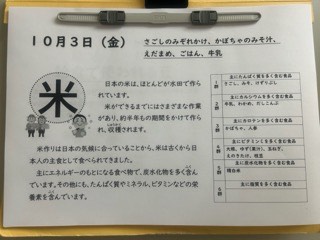 10月3日(金)
さごしのみぞれかけ、かぼちゃのみそ汁、
えだまめ、ごはん、牛乳
米
日本の米は、ほとんどが水田で作ら
れています。
米ができるまでにはさまざまな作業
があり、約半年もの期間をかけて作ら
れ、収穫されます。
米作りは日本の気候に合っていることから、米は古くから日
本人の主食として食べられてきました。
主にエネルギーのもとになる食べ物で、炭水化物を多く含ん
でいます。その他にも、たんぱく質やミネラル、ビタミンなどの
栄養素を含んでいます。
主にたんぱく質を多く含む食品
1群
さごし、みそ、けずりぶし
主にカルシウムを多く含む食品
2群
牛乳、わかめ、だしこんぶ
主にカロテンを多く含む食品
3群
かぼちゃ、人参
主にビタミンCを多く含む食品
4群
大根、ゆず(果汁)、玉ねぎ、
えのきたけ、枝豆
主に炭水化物を多く含む食品
5群
精白米
主に脂質を多く含む食品
6群